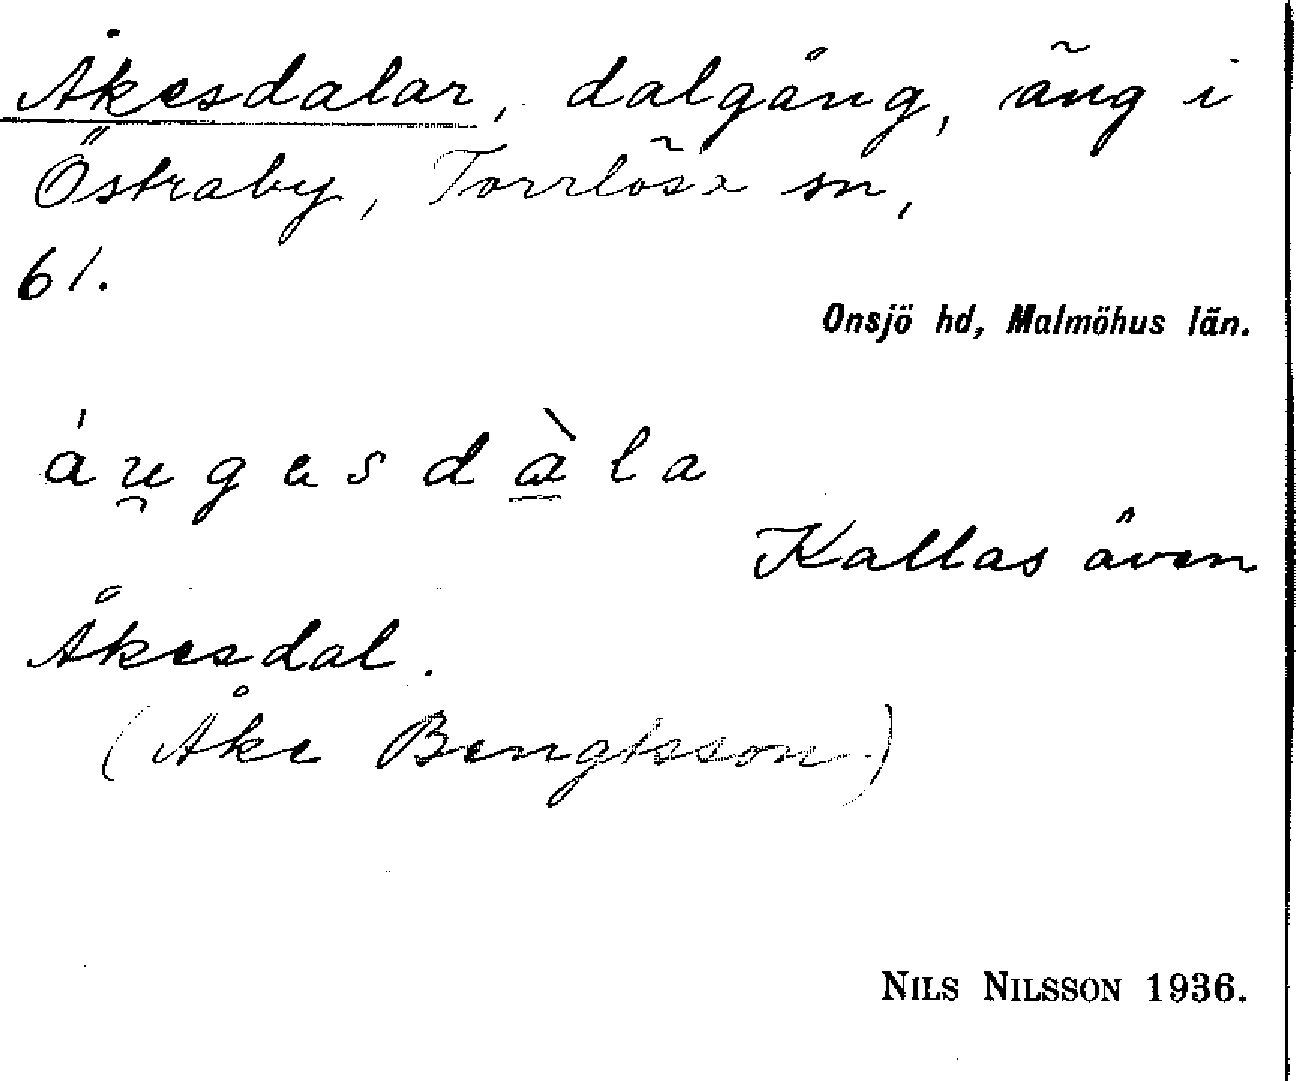 Åkesdalar, dalgång, äng i
Östraby, Torrlösa sn,
61.
Onsjö hd, Malmöhus län.
Kallas även
Åkesdal.
(Åke Bengtsson)
NILS NILSSON 1936.